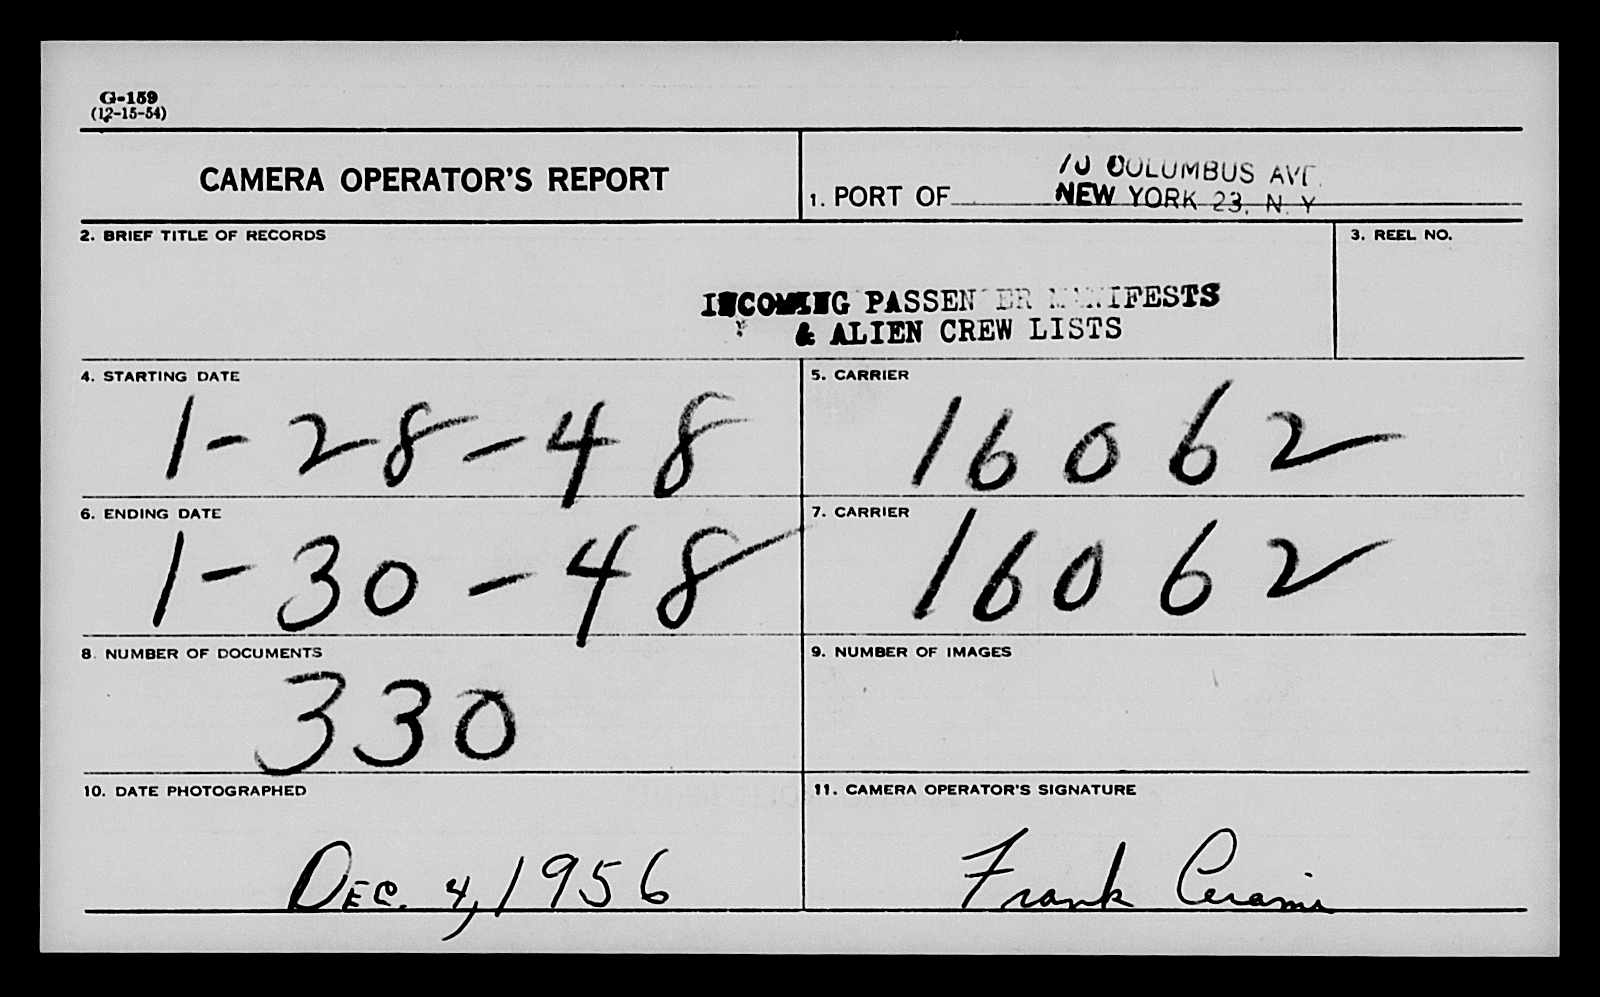 G-159
(12-15-54)
CAMERA OPERATOR'S REPORT
1. PORT OF
70 COLUMBUS AVE.
NEW YORK 23, N. Y
2. BRIEF TITLE OF RECORDS
3. REEL NO.
INCOMING PASSENGER MANIFESTS
& ALIEN CREW LISTS
4. STARTING DATE
1-28-48
5. CARRIER
16062
6. ENDING DATE
1-30-48
7. CARRIER
16062
8. NUMBER OF DOCUMENTS
330
9. NUMBER OF IMAGES
10. DATE PHOTOGRAPHED
Dec. 4, 1956
11. CAMERA OPERATOR'S SIGNATURE
Frank Cerami